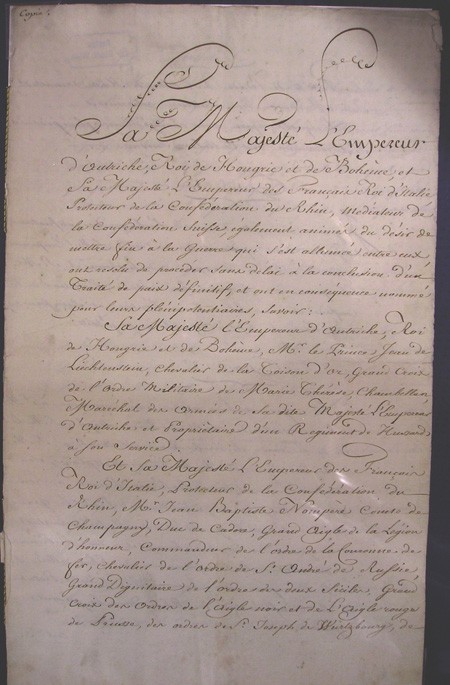 Copie.
Sa Majesté L'Empereur
d'Autriche, Roi de Hongrie et de Bohême, et
Sa Majesté L'Empereur des Français Roi d'Italie
Protecteur de la Confédération du Rhin, Médiateur de
la Confédération Suisse également animés du désir de
mettre fin à la Guerre qui s'est allumée entre eux
ont résolu de procéder sans délai à la conclusion d'un
Traité de paix définitif, et ont en conséquence nommé
pour leurs plénipotentiaires, savoir:
Sa Majesté l'Empereur d'Autriche, Roi
de Hongrie et de Bohême, Mr. le Prince Jean de
Liechtenstein, Chevalier de la Toison d'or, Grand Croix
de l'Ordre Militaire de Marie Thérèse, Chambellan,
Maréchal des Armées de Sa dite Majesté L'Empereur
d'Autriche et Propriétaire d'un Régiment de Husards
à son Service.
Et Sa Majesté L'Empereur des Français
Roi d'Italie, Protecteur de la Confédération du
Rhin, Mr. Jean Baptiste Nompère Comte de
Champagny, Duc de Cadore, Grand Aigle de la Légion
d'honneur, Commandeur de l'ordre de la Couronne de
fer, Chevalier de l'ordre de St. André de Russie,
Grand Dignitaire de l'ordre des deux Siciles, Grand
Croix des Ordres de l'Aigle noir et de L'Aigle rouge
de Prusse, des ordres de St. Joseph de Würtzbourg, de